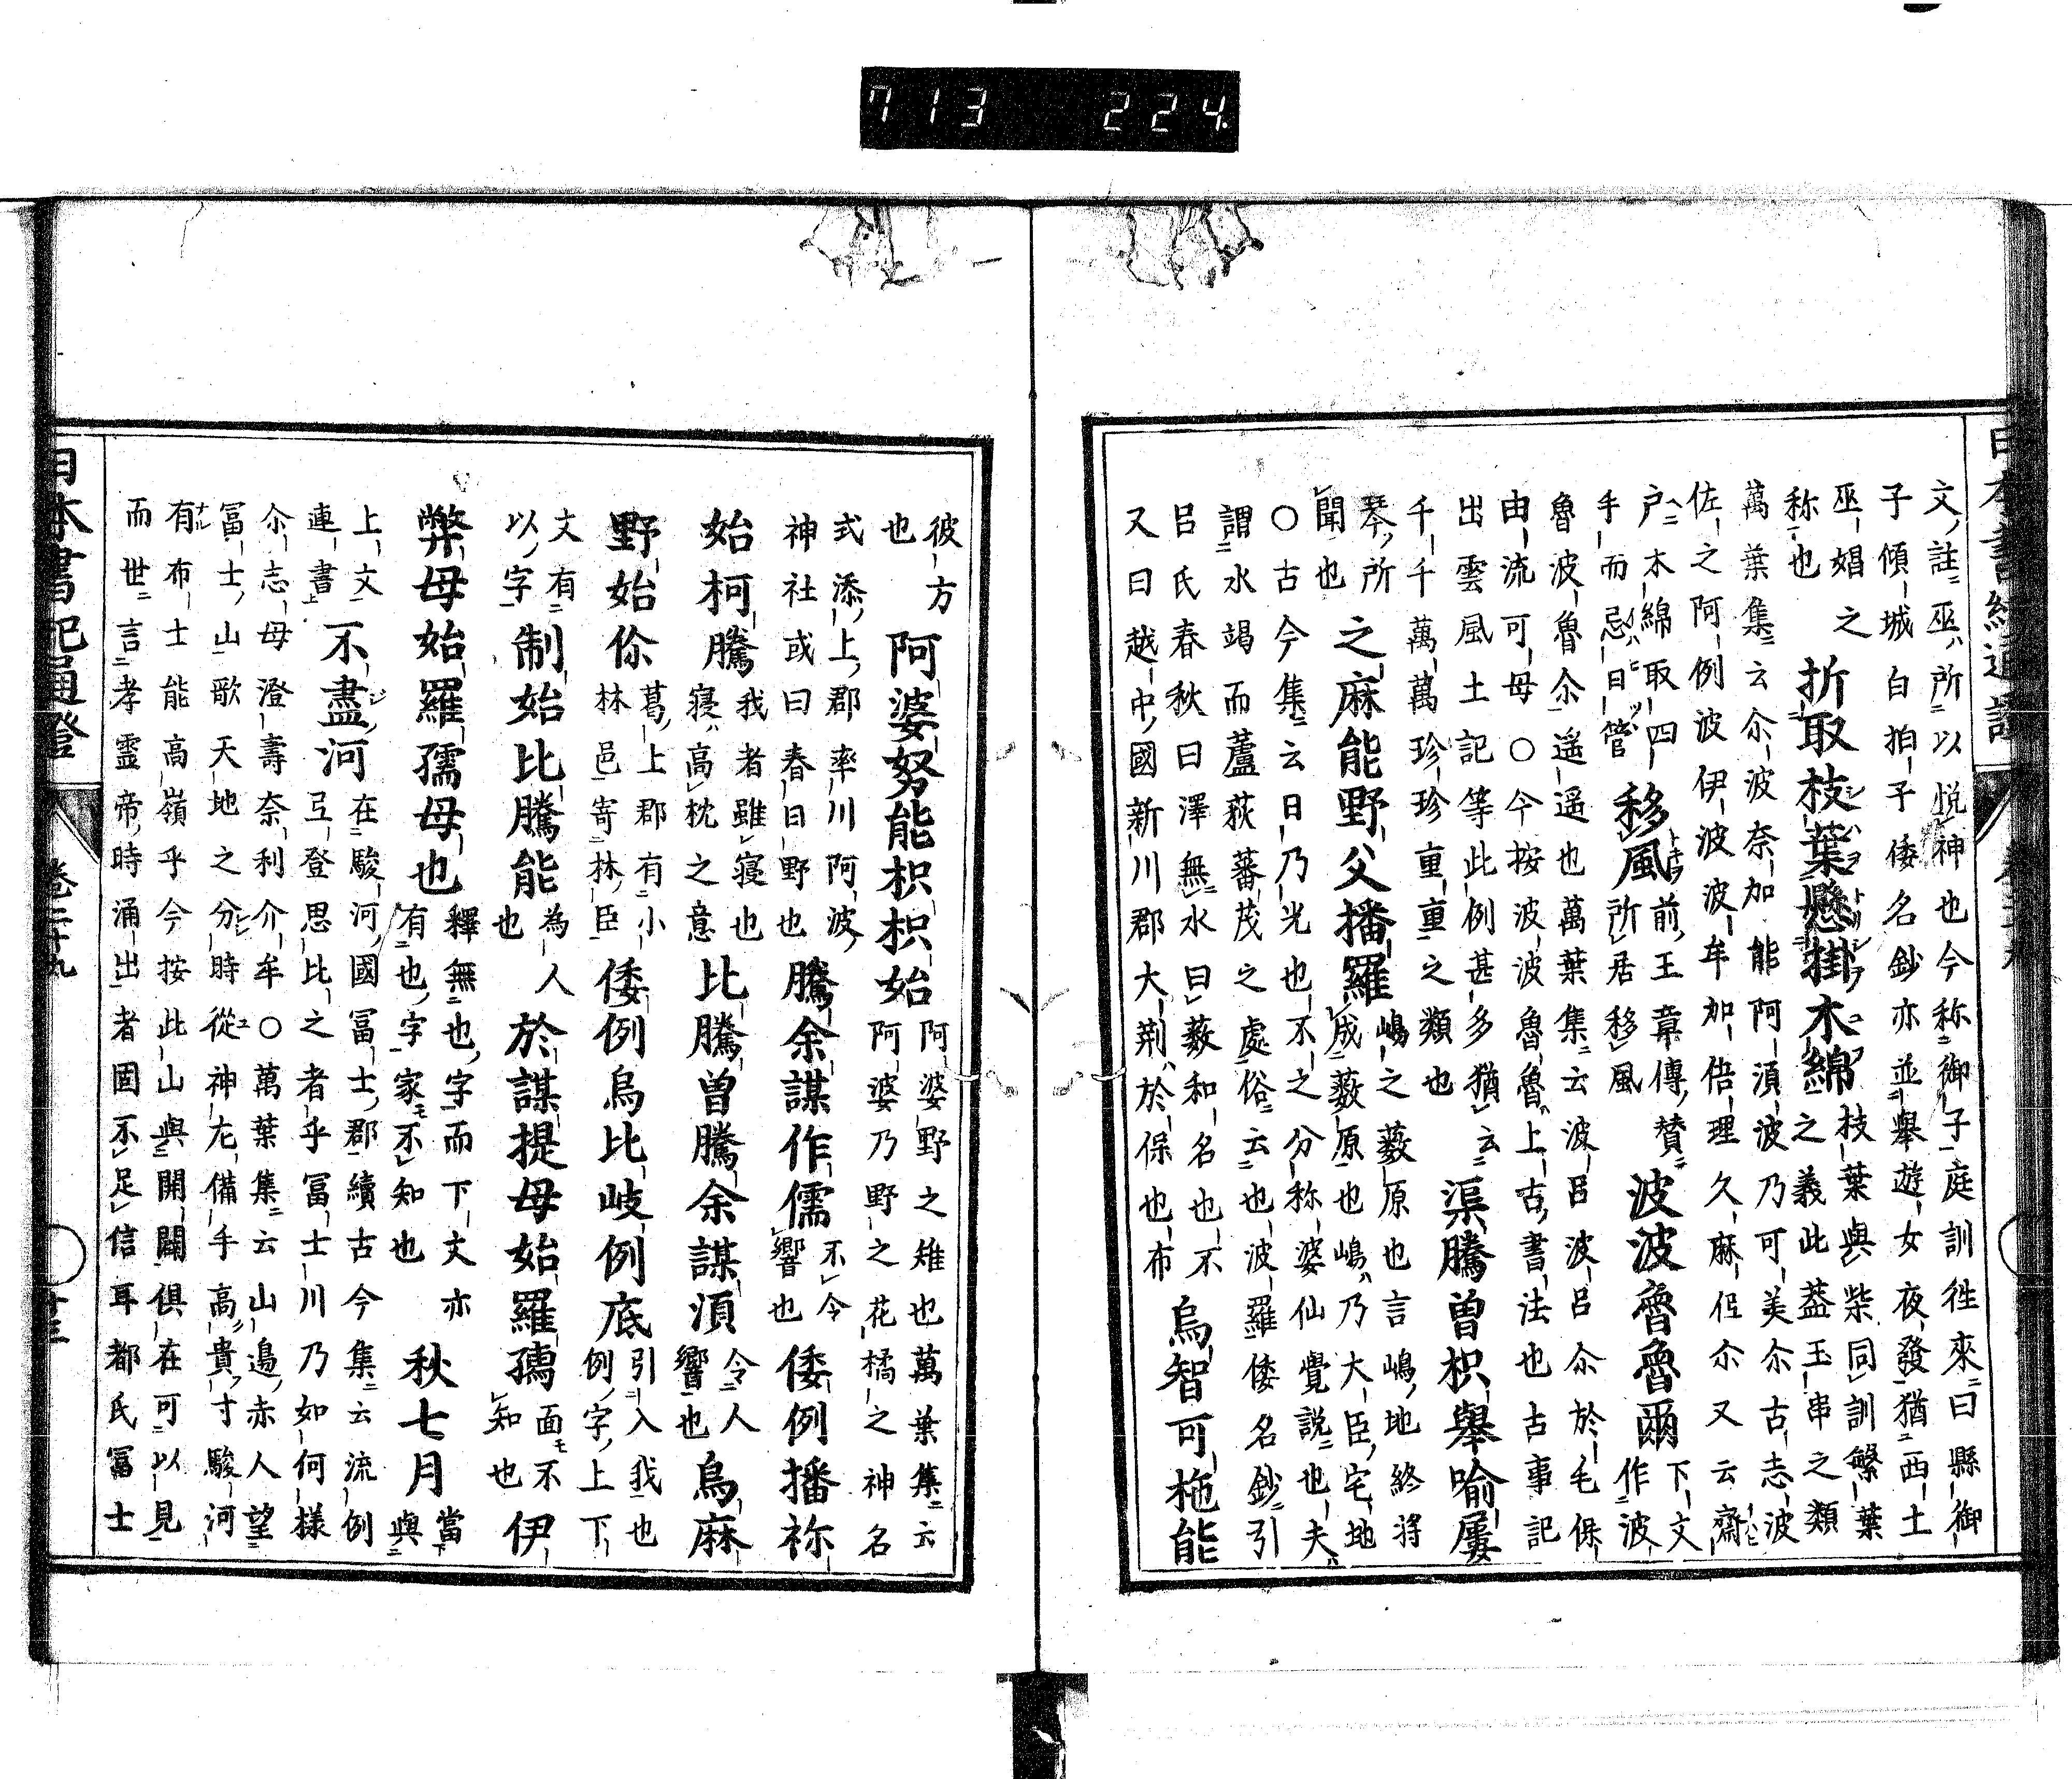 713 224
文註巫所以悦神也今称御子庭訓徃來曰縣御
子傾城白拍子倭名鈔亦並擧遊女夜發猶西土
巫娼之
称也
折取枝葉懸掛木綿
枝葉與柴同訓繁葉
之義此葢玉串之類
萬葉集云尒波奈加能阿湏波乃可美尒古志波
佐之阿例波伊波波牟加倍理久麻侄尒又云齋
户木綿取四
手而忌日管
移風
前王章傳賛
所居移風
波波魯魯爾
下文
作波
魯波魯尒遥遥也萬葉集云波吕波吕尒於毛保
由流可母○今按波波魯魯上古書法也古事記
出雲風土記等此例甚多猶云
千千萬萬珍珍重重之類也
渠騰曽枳擧喻屢
琴所
聞也
之麻能野父播羅
嶋之藪原也言嶋地終將
成藪原也嶋乃大臣宅地
○古今集云日乃光也不之分称婆仙覺説也夫
謂水竭而蘆荻蕃茂之處俗云也波羅倭名鈔引
呂氏春秋曰澤無水曰藪和名也不
又曰越中國新川郡大荊於保也布
烏智可拖能
彼方
也
阿婆努能枳枳始
阿婆野之雉也萬葉集云
阿婆乃野之花橘之神名
式添上郡率川阿波
神社或曰春日野也
騰余謀作儒
不令
響也
倭例播祢
始柯騰
我者雖寝也
寝高枕之意
比騰曽騰余謀湏
令人
響也
烏麻
野始你
葛上郡有小
林邑寄林臣
倭例烏比岐例底
引入我也
例字上下
文有
以字
制始比騰能
為人
也
於謀提母始羅孺
面不
知也
伊
弊母始羅孺母也
釋無也字而下文亦
有也字家不知也
秋七月
當
與
上文
連書
不盡河
在駿河國冨士郡續古今集云流例
弖登思比之者乎冨士川乃如何様
尒志母澄壽奈利介牟○萬葉集云山邉赤人望
冨士山歌天地之分時從神左備手高貴寸駿河
有布士能高嶺乎今按此山與開闢俱在可以見
而世言孝霊帝時涌出者固不足信耳都氏冨士
日本書紀通證
卷二十九
十三